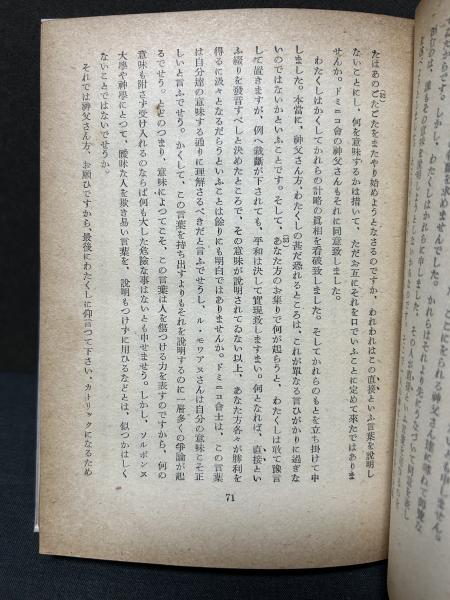 たはあのごたごたをまたやり始めようとなさるのですか、われわれはこの、直接といふ言葉を説明し
ないことにし、何を意味するかは措いて、ただお互にそれを口でいふことに定めて來たではありま
せんか。ドミニコ會の神父さんもそれに同意致しました。
わたくしはかくしてかれらの計略の眞相を看破致しました。そしてかれらのもとを立ち掛けて申
しました。本當に、神父さん方、わたくしの甚だ恐れるところは、これが單なる言ひがかりに過ぎな
いのではないかといふことです。そして、あなた方のお集りで何が起らうと、わたくしは敢て豫言
して置きますが、例へ裁斷が下されても、平和は決して實現致しますまい。何となれば、直接とい
ふ綴りを發音すべしと決めたところで、その意味が説明されてゐない以上、あなた方各々が勝利を
得るに汲々となるだらうといふことは餘りにも明白ではありませんか。ドミニコ會士は、この言葉
は自分達の意味する通りに理解さるべきだと言ふでせうし、ル・モワアヌさんは自分の意味こそ正
しいと言ふでせう。かくして、この言葉を持ち出すよりもそれを説明するのに一層多くの爭論が起
るでせう。とどのつまり、意味によつてこそ、この言葉は人を傷つける力を表すのですから、何の
意味も附さず受け入れるのならば何も大した危險な事はないとも申せませう。しかし、ソルボンヌ
大學や神學にとつて、曖昧な人を欺き易い言葉を、説明もつけずに用ひるなどとは、似つかはしく
ないことではないでせうか。
それでは神父さん方、お願ひですから、最後にわたくしに仰言つて下さい、カトリックになるため
71